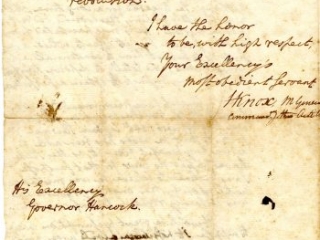 revolution.
I have the honor
to be, with high respect,
Your Excellency's
most obedient servant
HKnox M General
His Excellency
Governor Hancock.